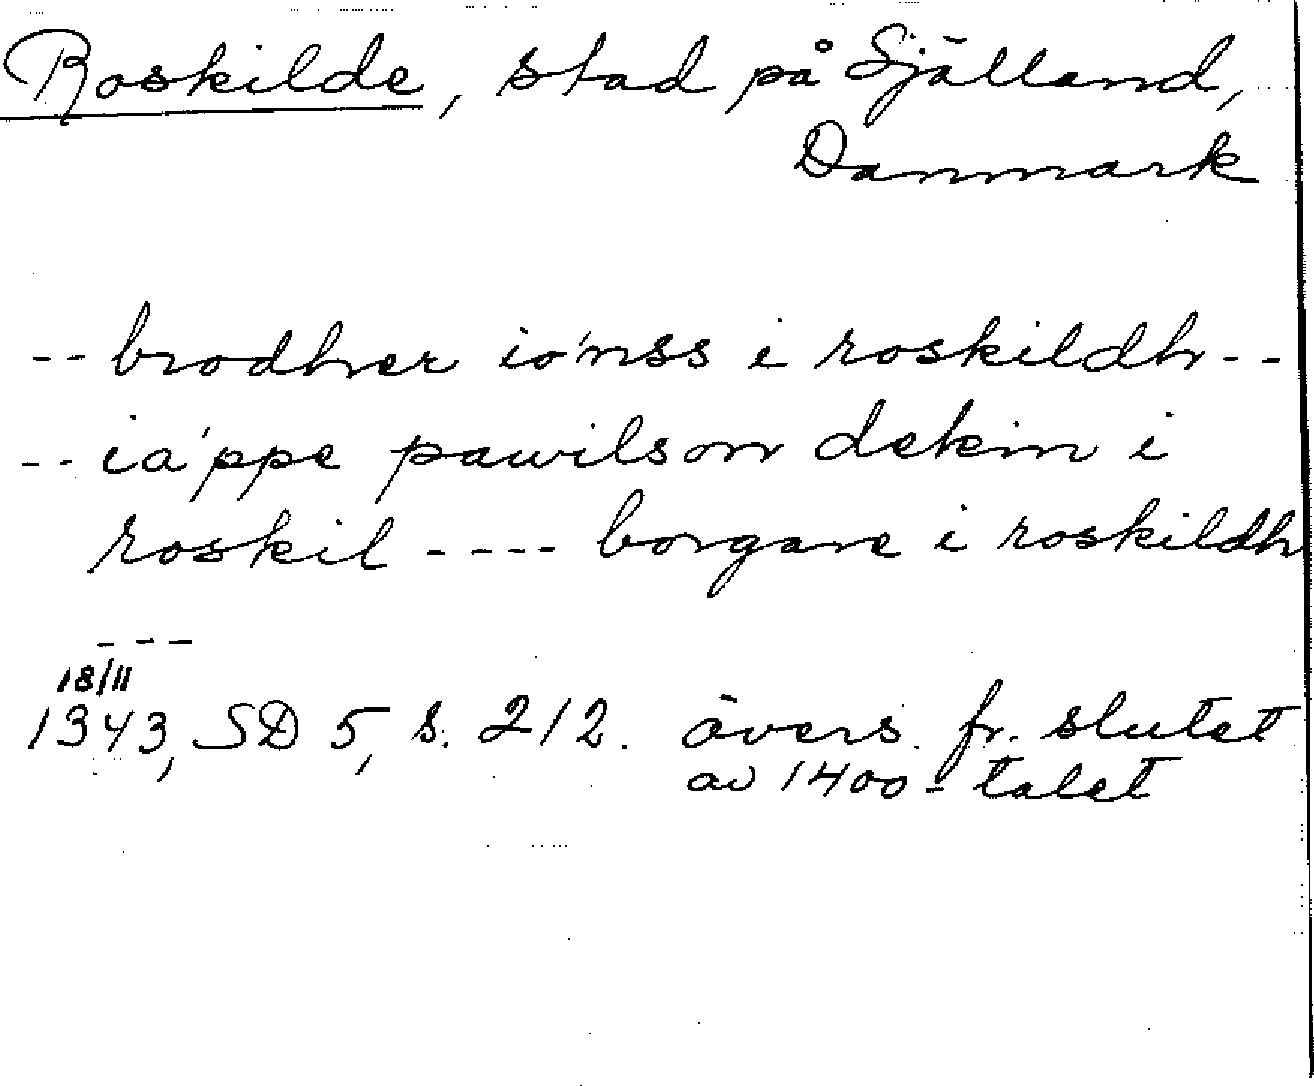 Roskilde, stad på Själland,
Danmark
-- brodher ió'nss i roskildh --
-- iá'ppe pawilson dekin i
roskil ---- borgare i roskildh
---
18/11
1343, SD 5, s. 212. övers. fr. slutet
av 1400-talet